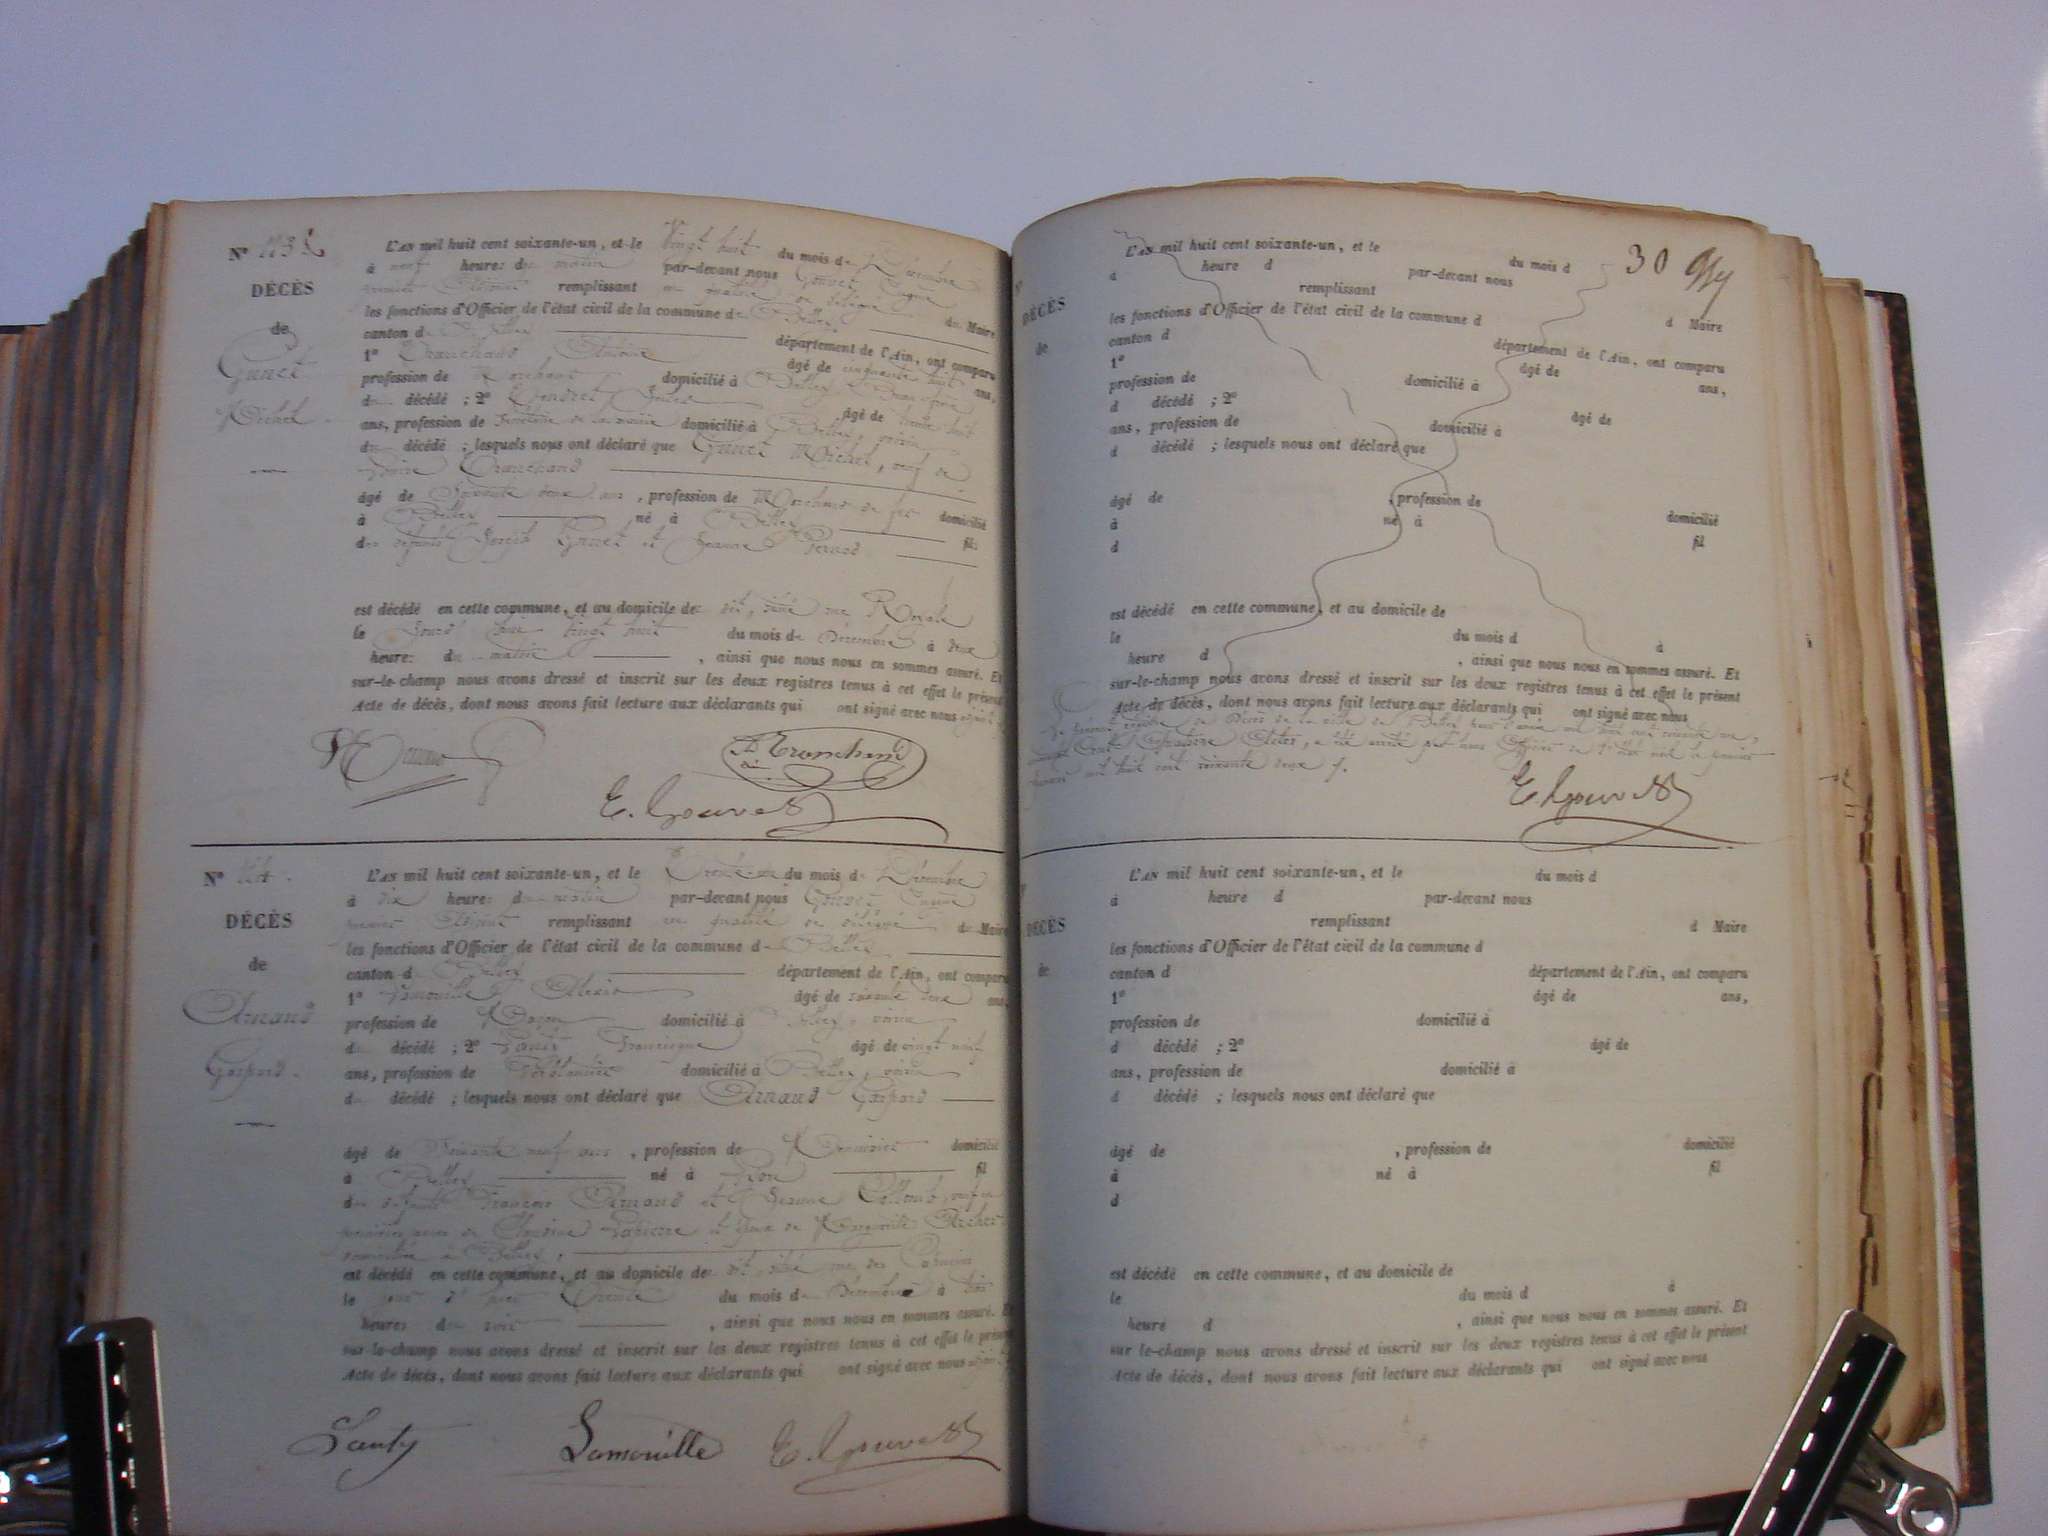 Nº 113
DÉCÈS
de
Gunet
Michel
L'AN mil huit cent soixante-un, et le Vingt huit du mois de Décembre
à neuf heures du matin par-devant nous Gouvet Eugène
premier adjoint remplissant en qualité de délégué du Maire
les fonctions d'Officier de l'état civil de la commune de Belley
canton de Belley département de l'Ain, ont comparu
1º Tronchand Antoine âgé de cinquante huit ans,
profession de Marchand domicilié à Belley, Beau frère
du décédé ; 2º âgé de trente huit
ans, profession de Secrétaire de la mairie domicilié à Belley, voisin
du décédé ; lesquels nous ont déclaré que Gunet Michel, veuf de
Tronchand
âgé de Soixante deux ans, profession de Marchand de fer domicilié
à Belley né à Belley fils
des défunts Joseph Gunet et Jeanne Pernod
est décédé en cette commune, et au domicile de dit, situé rue Royale
le jourd'hui vingt huit du mois de Décembre à deux
heures du matin , ainsi que nous nous en sommes assuré. Et
sur-le-champ nous avons dressé et inscrit sur les deux registres tenus à cet effet le présent
Acte de décès, dont nous avons fait lecture aux déclarants qui ont signé avec nous
A. Tronchand
E. Gouvet
Nº 114
DÉCÈS
de
Arnaud
Gaspard
L'AN mil huit cent soixante-un, et le Trente un du mois de Décembre
à dix heures du matin par-devant nous Gouvet Eugène
premier adjoint remplissant en qualité de délégué du Maire
les fonctions d'Officier de l'état civil de la commune de Belley
canton de Belley département de l'Ain, ont comparu
1º Lamouille Alexis âgé de soixante deux ans,
profession de Maçon domicilié à Belley, voisin
du décédé ; 2º Sauty Francisque âgé de vingt neuf
ans, profession de Ferblantier domicilié à Belley, voisin
du décédé ; lesquels nous ont déclaré que Arnaud Gaspard
âgé de Soixante neuf ans, profession de Menuisier domicilié
à Belley né à fils
des défunts François Arnaud et Jeanne Collomb, veuf en
premières noces de Claudine Lapierre et époux de Marguerite
domiciliée à Belley,
est décédé en cette commune, et au domicile de dit, situé rue des
le jour d'hier Trente du mois de Décembre à trois
heures du soir , ainsi que nous nous en sommes assuré. Et
sur-le-champ nous avons dressé et inscrit sur les deux registres tenus à cet effet le présent
Acte de décès, dont nous avons fait lecture aux déclarants qui ont signé avec nous
Sauty Lamouille E. Gouvet
30
DÉCÈS
de
L'AN mil huit cent soixante-un, et le du mois d
à heure d par-devant nous
remplissant d Maire
les fonctions d'Officier de l'état civil de la commune d
canton d département de l'Ain, ont comparu
1º âgé de ans,
profession de domicilié à
d décédé ; 2º âgé de
ans, profession de domicilié à
d décédé ; lesquels nous ont déclaré que
âgé de , profession de domicilié
à né à fil
d
est décédé en cette commune, et au domicile de
le du mois d à
heure d , ainsi que nous nous en sommes assuré. Et
sur-le-champ nous avons dressé et inscrit sur les deux registres tenus à cet effet le présent
Acte de décès, dont nous avons fait lecture aux déclarants qui ont signé avec nous
Le présent registre de Décès de la ville de Belley pour l'année mil huit cent soixante un,
Cent quatorze actes, a été arrêté par nous Officier de l'état civil le premier
janvier mil huit cent soixante deux
E. Gouvet
DÉCÈS
de
L'AN mil huit cent soixante-un, et le du mois d
à heure d par-devant nous
remplissant d Maire
les fonctions d'Officier de l'état civil de la commune d
canton d département de l'Ain, ont comparu
1º âgé de ans,
profession de domicilié à
d décédé ; 2º âgé de
ans, profession de domicilié à
d décédé ; lesquels nous ont déclaré que
âgé de , profession de domicilié
à né à fil
d
est décédé en cette commune, et au domicile de
le du mois d à
heure d , ainsi que nous nous en sommes assuré. Et
sur-le-champ nous avons dressé et inscrit sur les deux registres tenus à cet effet le présent
Acte de décès, dont nous avons fait lecture aux déclarants qui ont signé avec nous